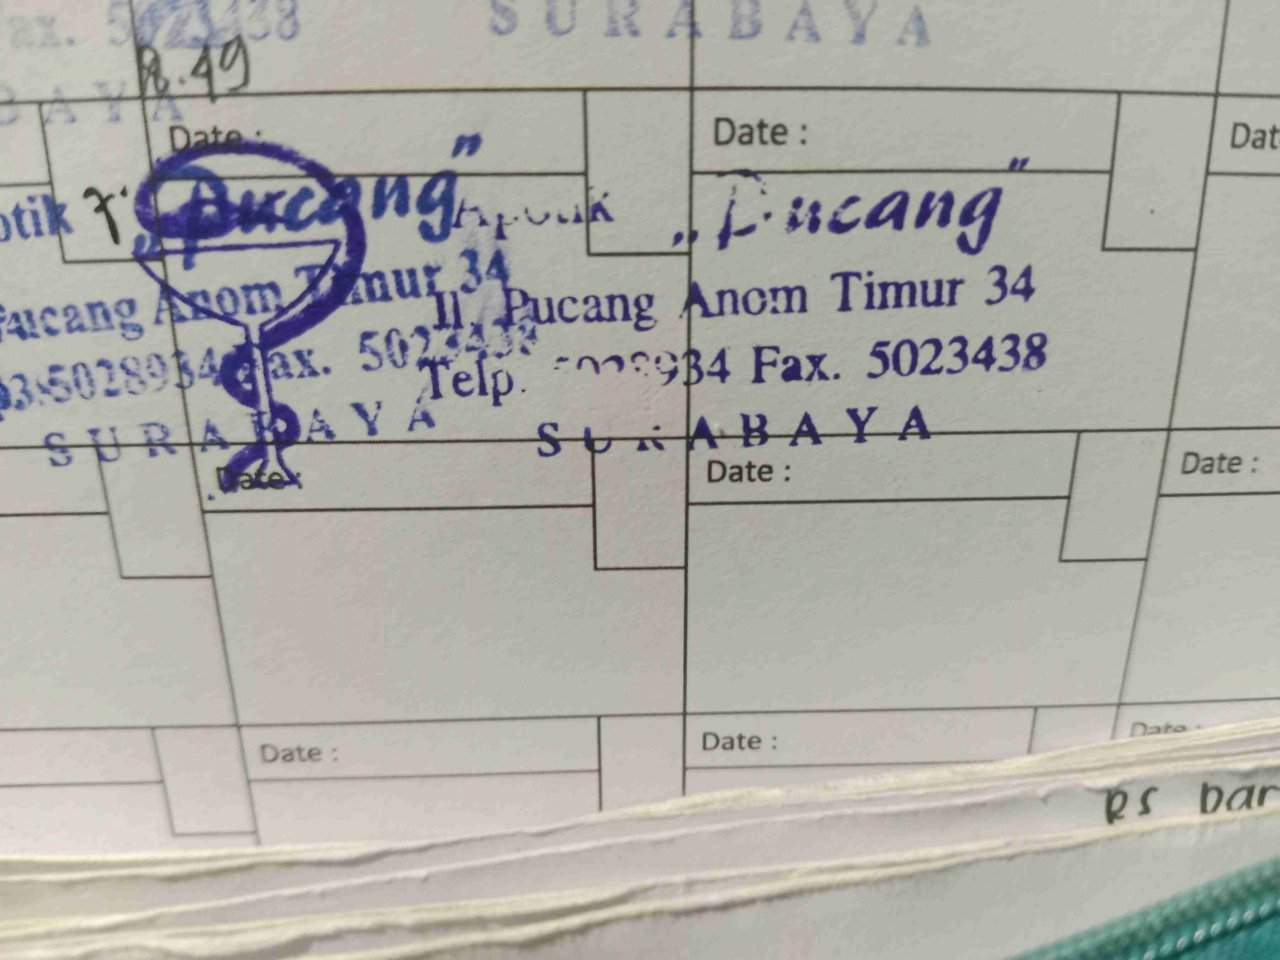 ax. 5023438
SURABAYA
8.49
BAYA
Date :
Date :
Dat
otik
„Pucang"
Apotik
„Pucang"
Pucang Anom Timur 34
Jl. Pucang Anom Timur 34
5028934 Fax. 5023438
Telp. 5028934 Fax. 5023438
SURABAYA
SURABAYA
Date :
Date :
Date :
Date :
Date :
Date :
RS